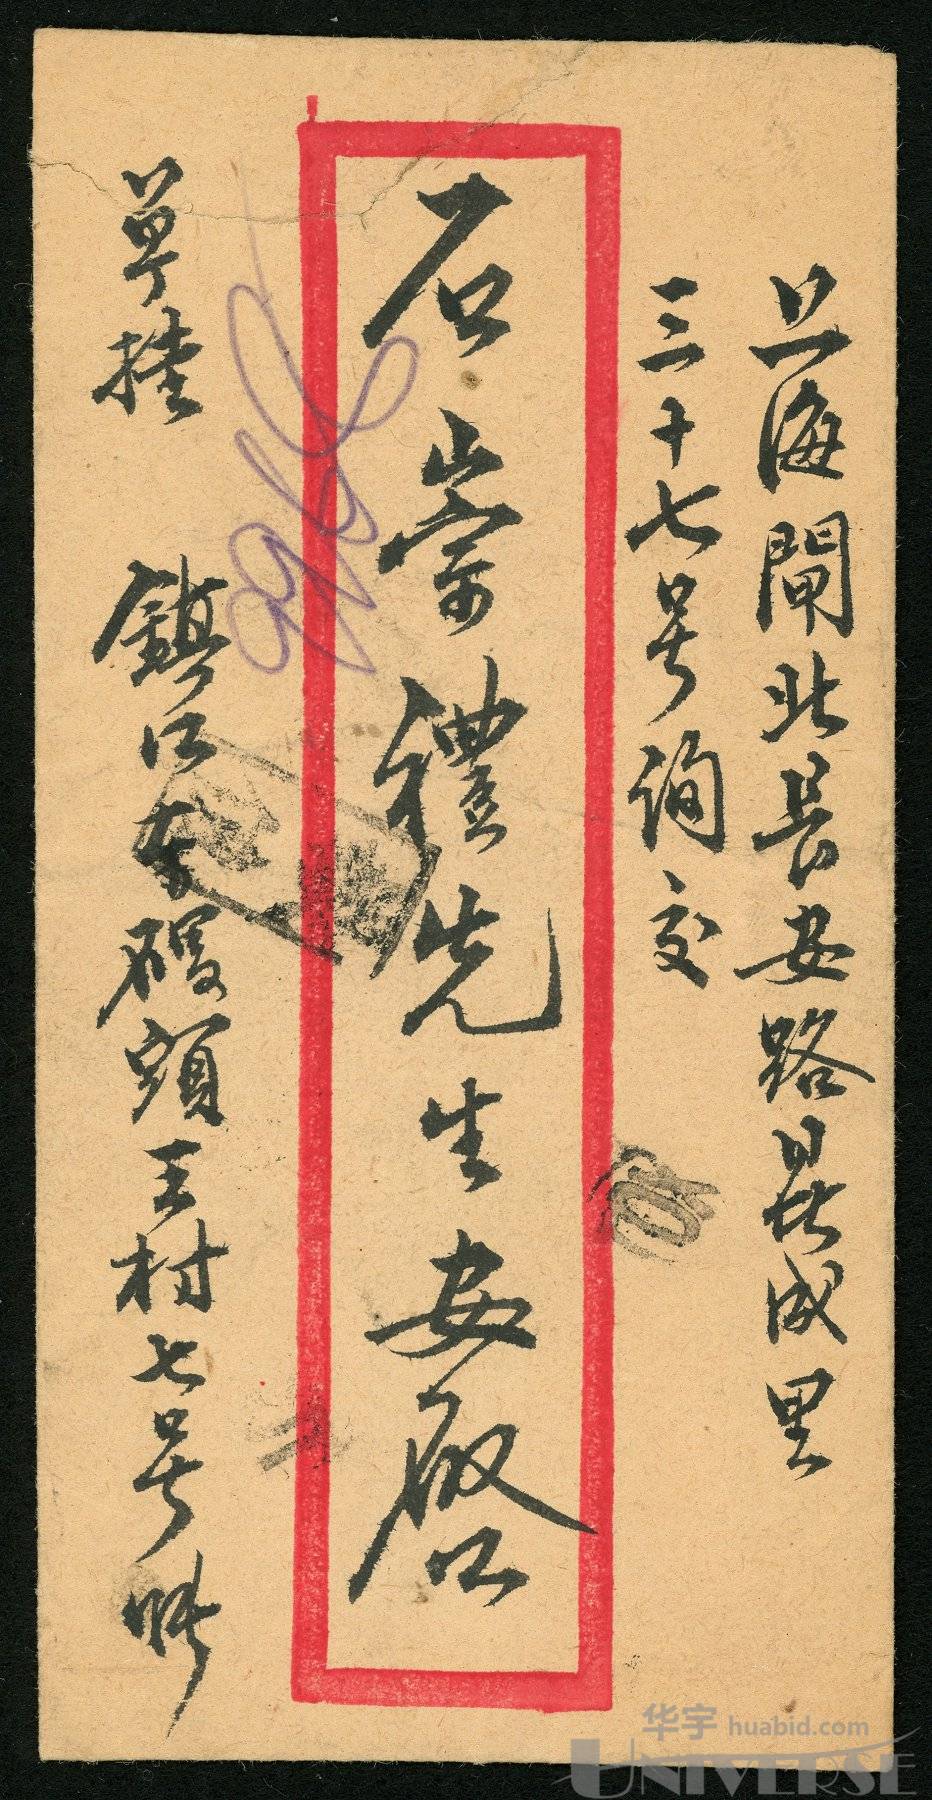 上海閘北長安路昆成里
三十七号詢交
石崇禮先生安啓
單挂
鎮江碼頭王村七号
华宇 huabid.com
UNIVERSE